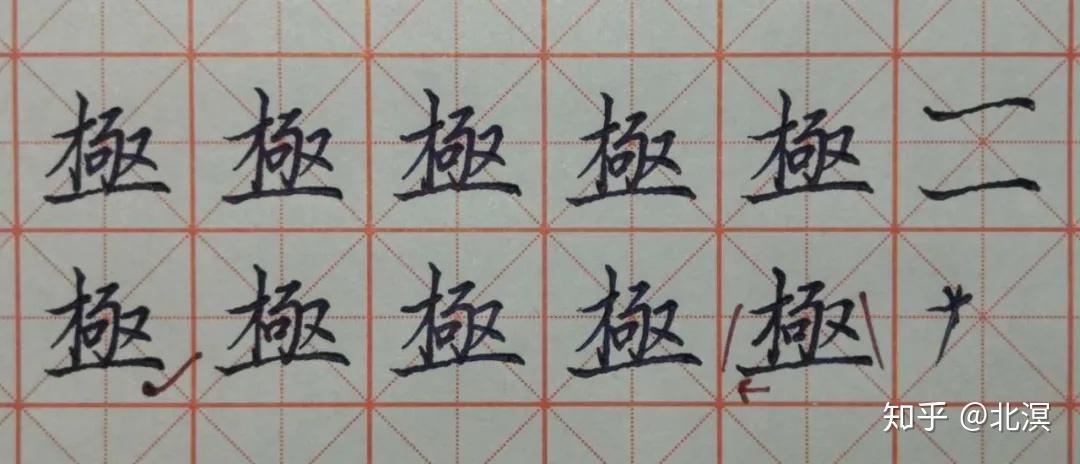 極 極 極 極 極 二
極 極 極 極 極
知乎 @北溟